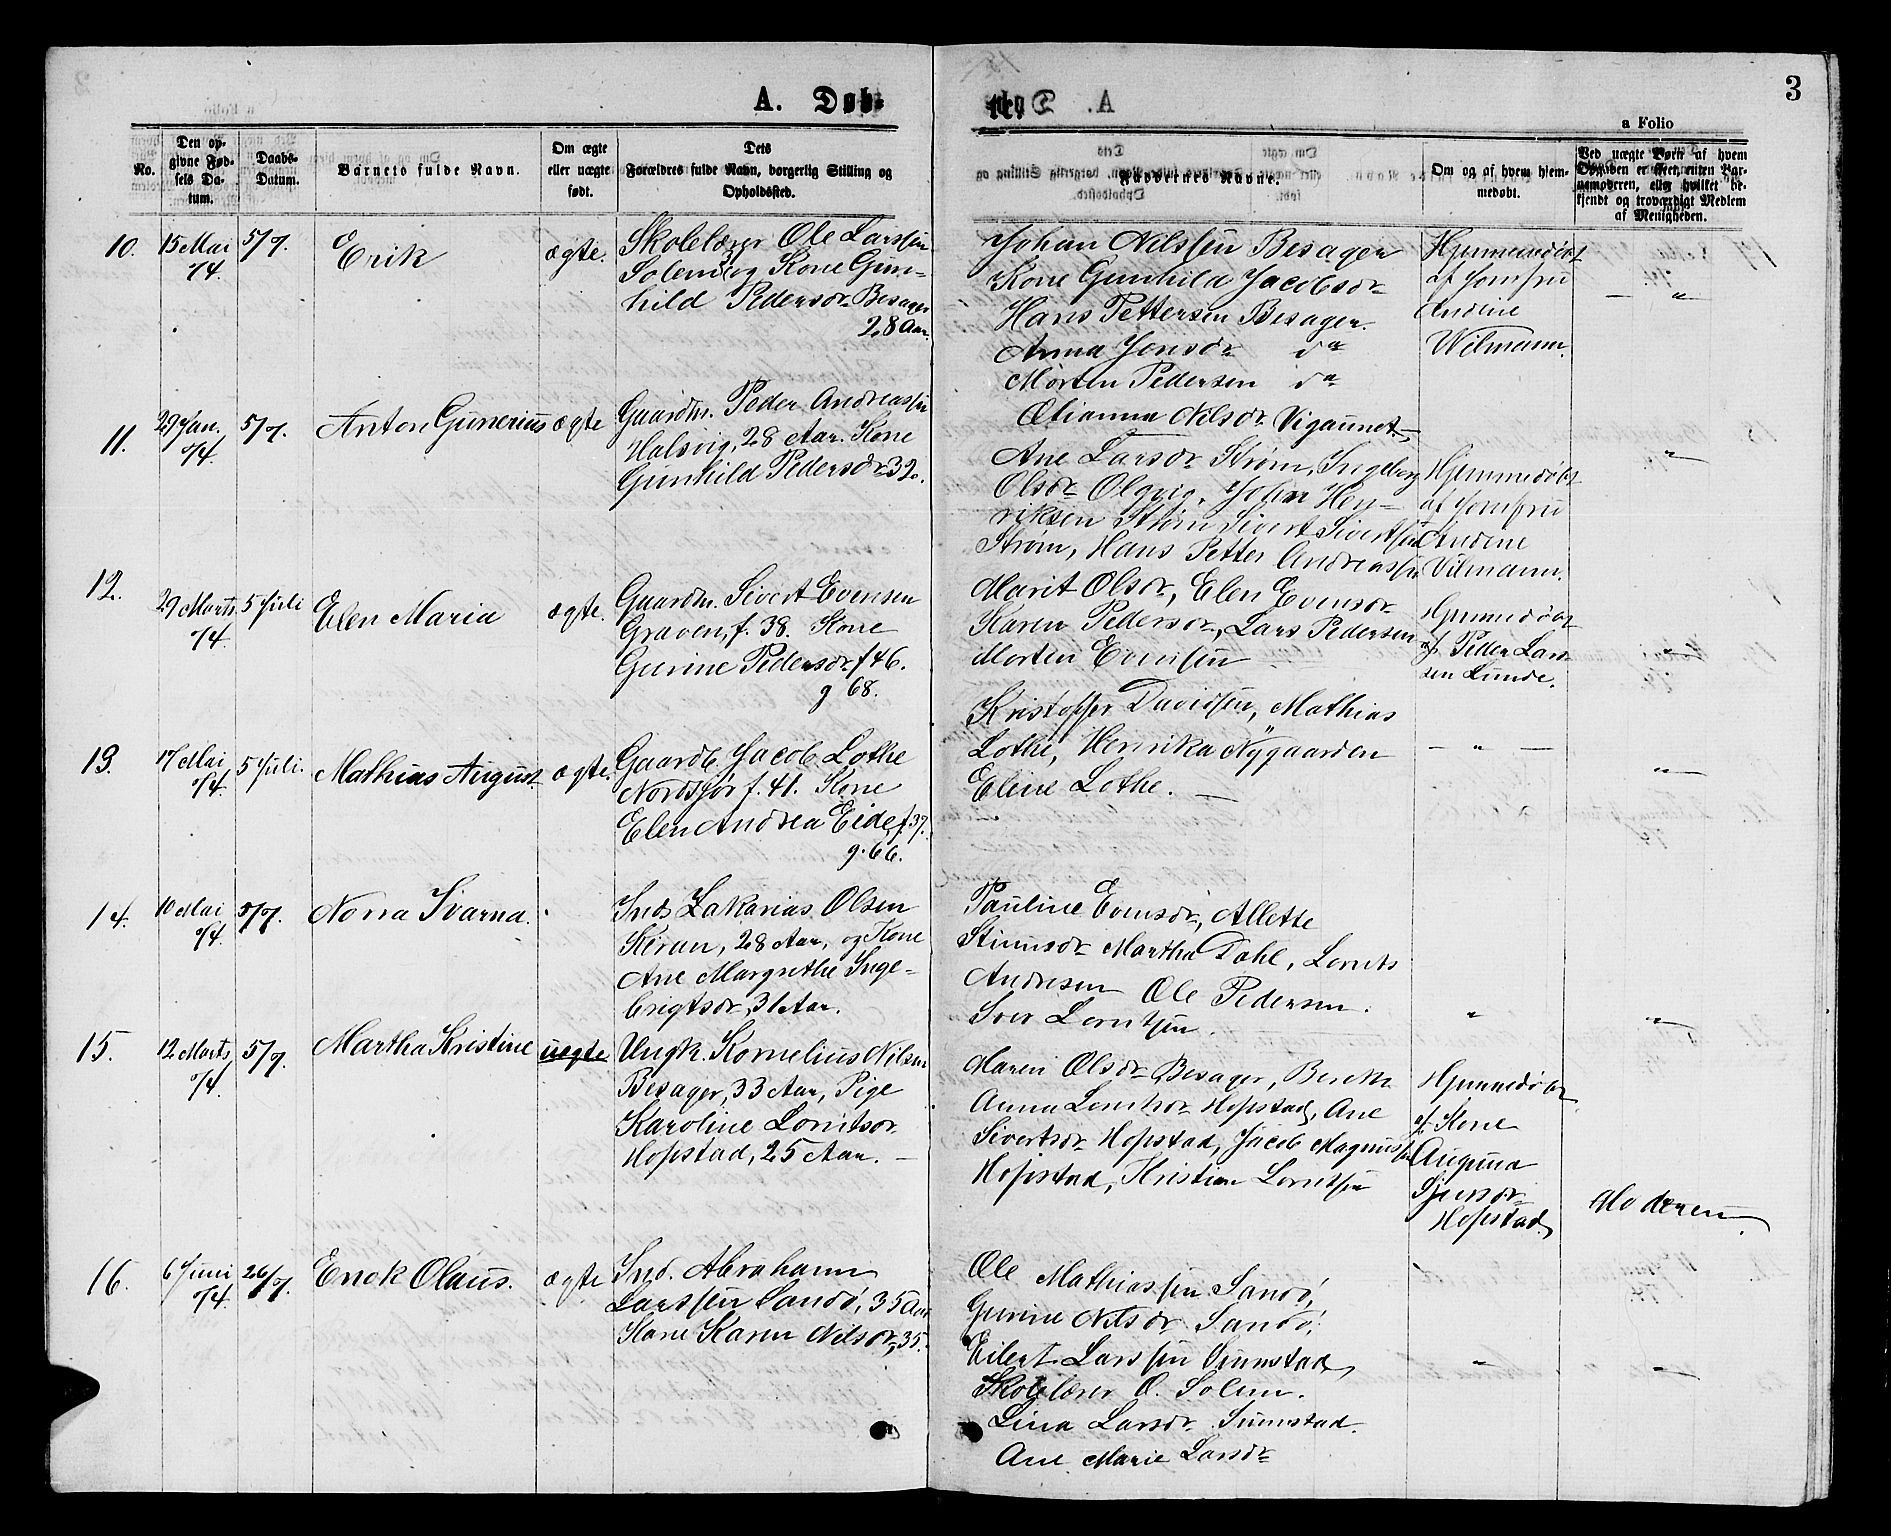 3
A. Døb-
te.
a Folio
No.
Den op-
givne Fød-
sels Da-
tum.
Daabs-
Datum.
Barnets fulde Navn.
Om ægte
eller uægte
født.
Dets
Forældres fulde Navn, borgerlig Stilling og
Opholdssted.
Faddernes Navne.
Om og af hvem hjem-
medøbt.
Ved uægte Børn af hvem
Opgiven er skeet, enten Bar-
nemoderen, eller hvilket be-
kjendt og troværdigt Medlem
af Menigheden.
10.
15 Mai
74.
5/7.
Erik
ægte.
Skolelærer Ole Larssen
Solem og Kone Gun-
hild Pedersdr Besager
28 Aar.
Johan Nilssen Besager
Kone Gunhild Jacobsdr
Hans Pettersen Besager.
Anna Jonsdr do
Morten Pedersen do
Olianna Nilsdr Vigaunet
Hjemmedøbt
af Jomfru
Andine
Wilmann.
— „
11.
29 Jan.
74.
5/7.
Anton Gunerius
ægte
Gaardm. Peder Andreassen
Halsvig, 28 Aar. Kone
Gunhild Pedersdr 32.
Ane Larsdr Strøm, Ingeborg
Olsdr Olqvig, John Hen-
riksen Strøm Sivert Sivertsen
Strøm, Hans Petter Andreassen
Hjemmedøbt
af Jomfru
Andine
Vilmann.
„
12.
29 Marts
74.
5 Juli
Elen Maria
ægte.
Gaardm. Sivert Evensen
Graven, f. 38. Kone
Gurine Pedersdr f 46.
g 68.
Marit Olsdr, Elen Evensdr
Karen Pedersdr, Lars Pedersen
Morten Evensen
Hjemmedøbt
af Peder Lar-
sen Lunde.
„
13.
17 Mai
74.
5 Juli.
Mathias August
ægte.
Gaardb. Jacob Lothe
Nordsjør f. 41. Kone
Elen Andrea Eide, f. 37.
g. 66.
Kristoffer Davidsen, Mathias
Lothe, Henrika Nygaarden
Eline Lothe. —
— „ —
„
14.
10 Mai
74.
5/7.
Norra Ivarna.
Inds Zakarias Olsen
Kiran, 28 Aar, og Kone
Ane Margrethe Inge-
brigtsdr, 31 Aar.
Pauline Evensdr, Allette
Stinusdr Martha Dahl, Lorents
Andresen Ole Pedersen.
Iver Lorntsen.
„
„
15.
12 Marts
74.
5/7.
Martha Kristine
uægte
Ungk. Kornelius Nilsen
Besager, 33 Aar, Pige
Karoline Lorntsdr
Hopstad, 25 Aar. —
Maren Olsdr Besager, Bereth
Anna Lorntsdr Hopstad, Ane
Sivertsdr Hopstad, Jacob Magnussen
Hopstad, Kristian Lorntsen
Hjemmedøbt
af Kone
Augusta
Hopstad,
Moderen
16.
6 Juni
74.
26/7.
Erick Olaus.
ægte
Ind. Abraham
Larssen Sandø, 35 Aar
Kone Karen Nilsdr, 35.
Ole Mathiassen Sandø,
Gurine Nilsdr Sandø,
Eilert Larssen Sumstad,
Skolelærer O. Solem.
Lina Larsdr Sumstad.
Ane Marie Larsdr
„
„